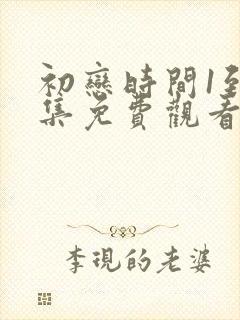 初戀時間1至
集免費觀看
李現的老婆